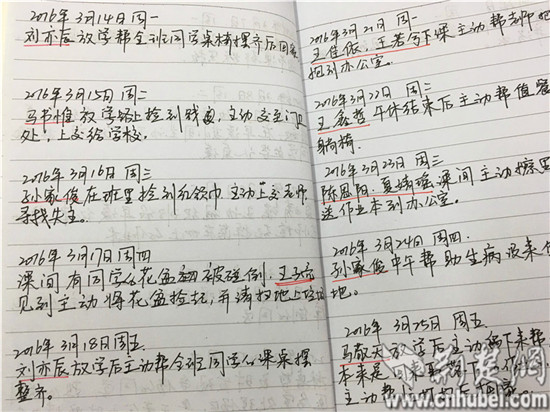 2016年3月14日 周一
刘亦辰放学帮全班同学桌椅摆齐后回家
2016年3月15日 周二
马书惟放学路上捡到钱包,主动交至门卫
处,上交给学校。
2016年3月16日 周三
孙家俊在班里捡到红领巾主动上交老师
寻找失主。
2016年3月17日 周四
课间有同学的花盆被碰倒,王
见到主动将花盆捡起,并清扫地上
2016年3月18日周五
刘亦辰放学后主动帮全班同学课桌摆
整齐。
2016年3月21日 周一
王佳依,王若兮下课主动帮老师把
抱到办公室。
2016年3月22日 周二
王鑫哲午休结束后主动帮值
躺椅
2016年3月23日 周三
陈恩阳、夏婧瑶课间主动擦黑
送作业本到办公室。
2016年3月24日 周四.
孙家俊中午帮助生病没来
地。
2016年 3月25日 周五
马敬天放学后主动留下来帮
本来是
主动帮
荆楚网
www.cnhubei.com